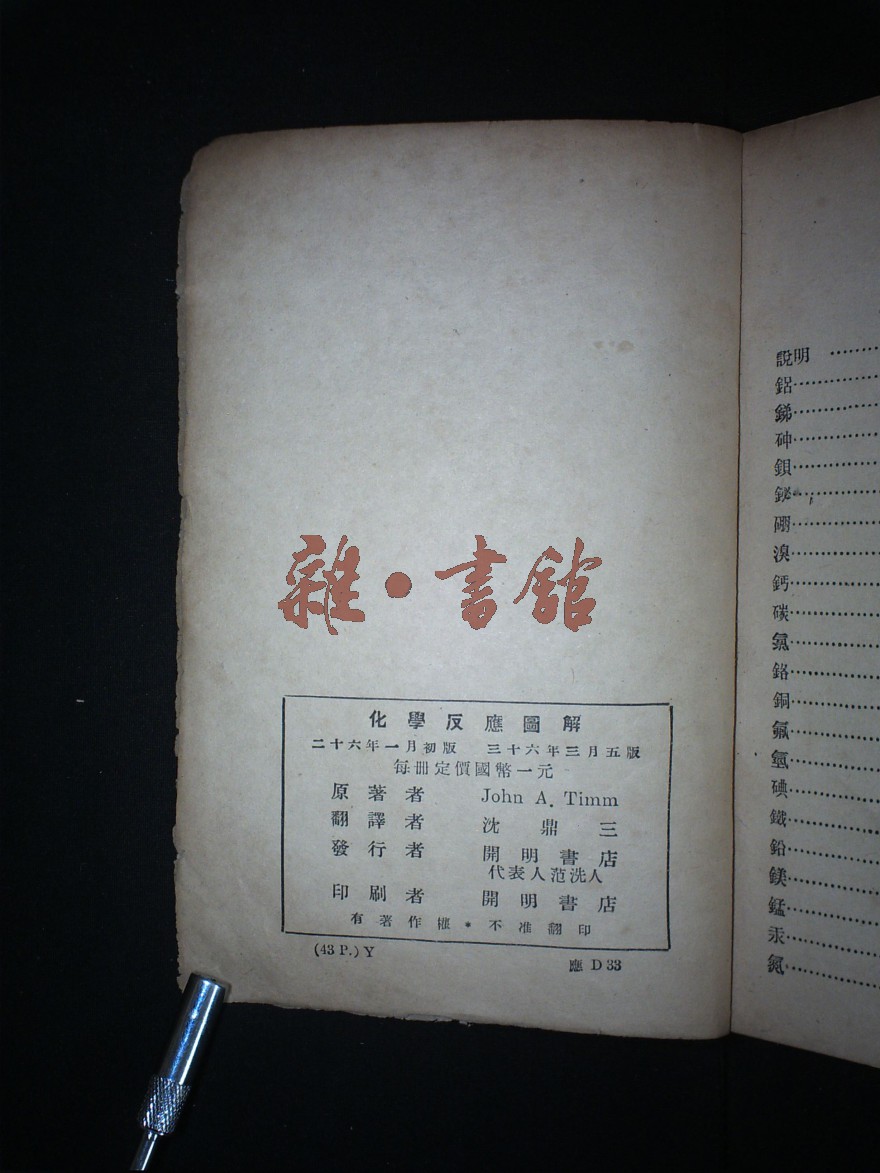 雜•書館
化學反應圖解
二十六年一月初版 三十六年三月五版
每冊定價國幣一元
原著者 John A. Timm
翻譯者 沈鼎三
發行者 開明書店
代表人范洗人
印刷者 開明書店
有著作權•不准翻印
(43 P.) Y 應 D 33
說明
鋁
銻
砷
鋇
鉍
硼
溴
鈣
碳
氯
鉻
銅
氟
氫
碘
鐵
鉛
鎂
錳
汞
氮